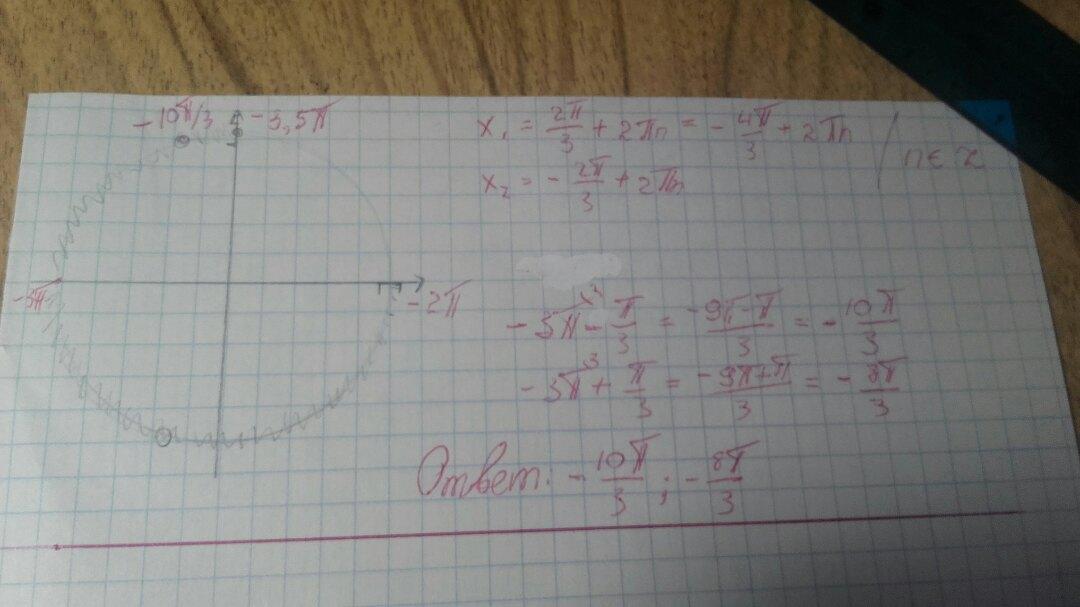 -10π/3
-3,5π
x₁ = 2π/3 + 2πn = -4π/3 + 2πn / n∈Z
x₂ = -2π/3 + 2πn
-3π
-2π
-3π - π/3 = (-9π-π)/3 = -10π/3
-3π + π/3 = (-9π+π)/3 = -8π/3
Ответ: -10π/3 ; -8π/3